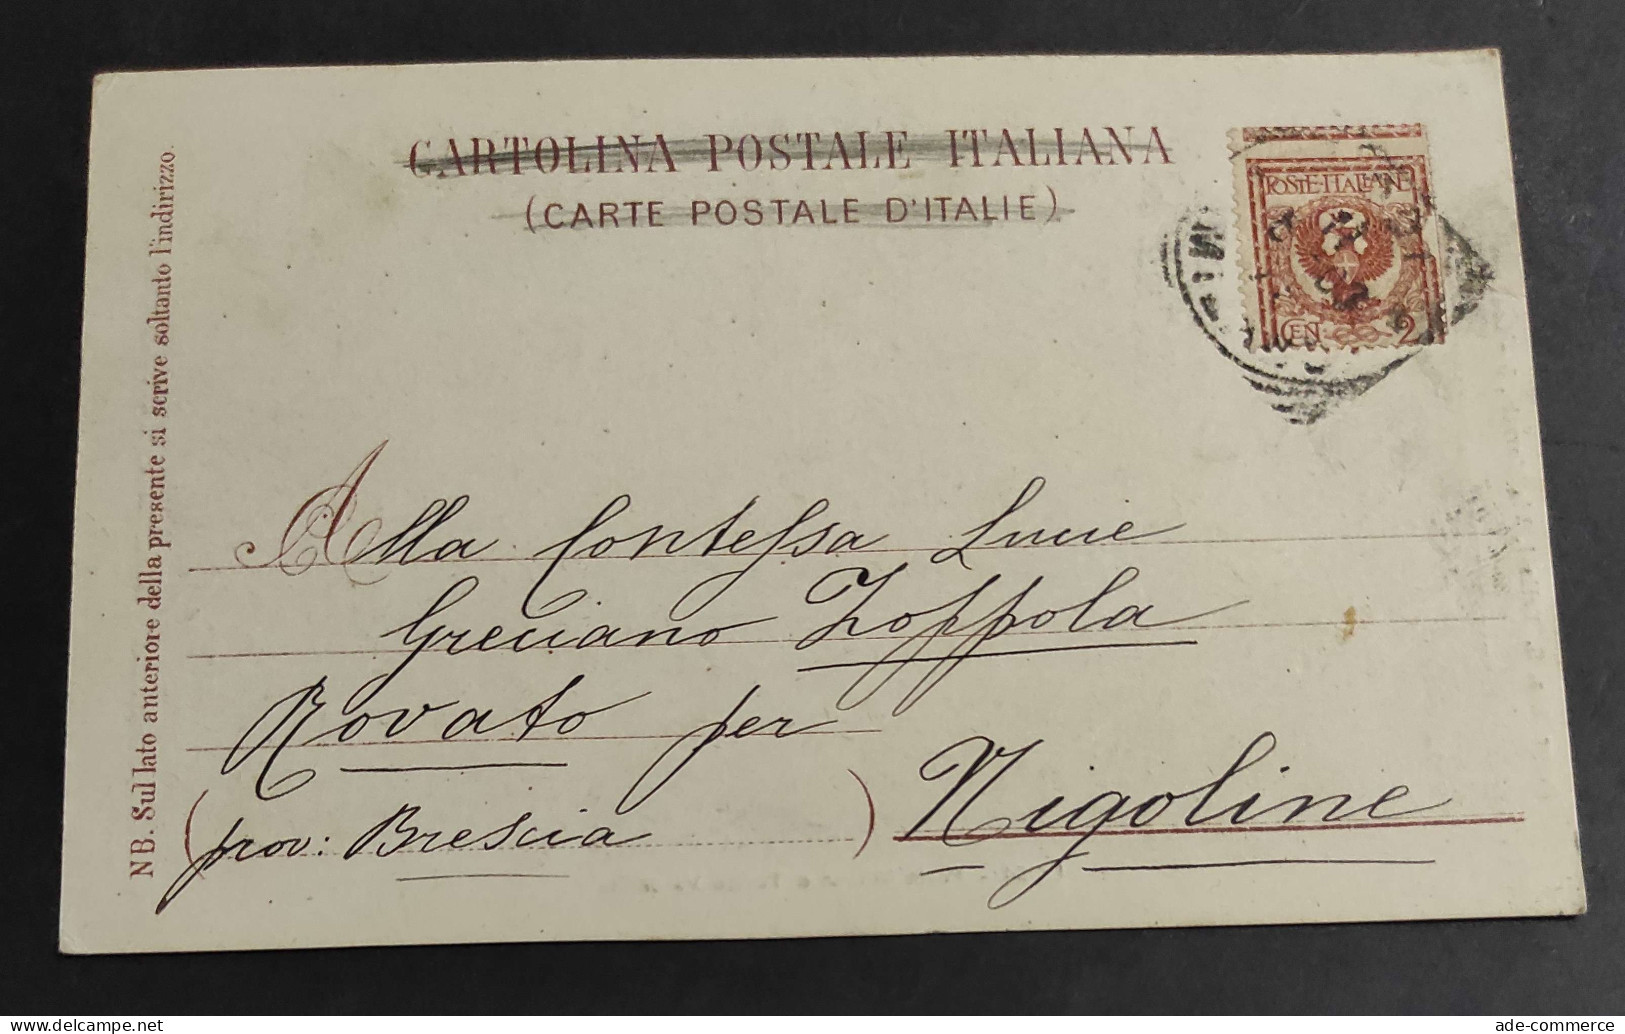 CARTOLINA POSTALE ITALIANA
(CARTE POSTALE D'ITALIE)
NB. Sul lato anteriore della presente si scrive soltanto l'indirizzo.
POSTE·ITALIANE
CEN. 2
Alla Contessa Lucie
Greciano Zoppola
Rovato per
Nigoline
(prov: Brescia)
ade-commerce